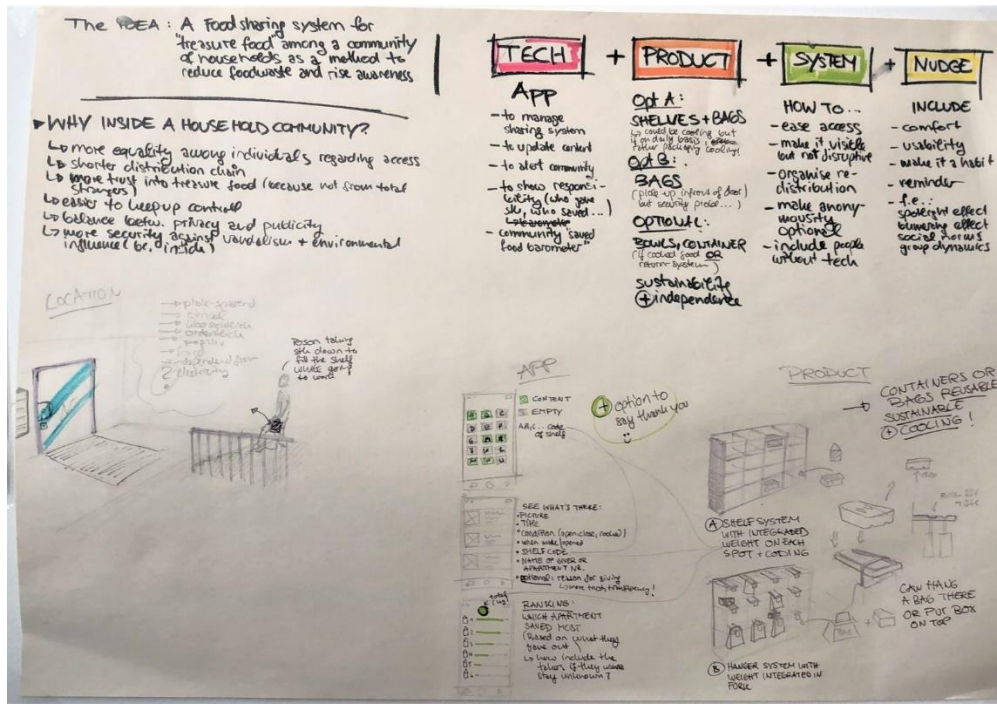 The IDEA: A Food sharing system for
"treasure food" among a community
of households as a method to
reduce foodwaste and rise awareness
WHY INSIDE A HOUSEHOLD COMMUNITY?
more equality among individuals regarding access
shorter distribution chain
more trust into treasure food (because not from total
strangers)
easier to keep up control
balance betw. privacy and publicity
more security against vandalism + environmental
influence (br. inside)
TECH + PRODUCT + SYSTEM + NUDGE
APP
- to manage
sharing system
- to update content
- to alert community
- to show responsi-
bility (who gave
sth, who saved...)
- community "saved
food barometer"
Opt A:
SHELVES + BAGS
could be cooling but
rather packaging cooling)
Opt B:
BAGS
(pick-up infront of door
but security probl...)
OPTIONAL:
BOWLS, CONTAINER
(if cooked food OR
return-system)
sustainability
+ independence
HOW TO...
- ease access
- make it visible
but not disruptive
- organise re-
distribution
- make anony-
mousity
optional
- include people
without tech
INCLUDE
- comfort
- usability
- make it a habit
- reminder
- f.e.:
spotlight effect
social norms
group dynamics
LOCATION
Person taking
sth down to
fill the shelf
while going
to work
APP
CONTENT
EMPTY
A,B,C... code
of shelf
+ option to
say thank you
SEE WHAT'S THERE:
• PICTURE
• TITLE
• condition (open, close, cooked)
• when made/opened
• SHELFCODE
• NAME OF GIVER OR
APARTMENT NR.
• optional: reason for giving
RANKING:
WHICH APARTMENT
SAVED MOST
(Based on what they
gave out)
how include the
takers if they want
stay unknown?
PRODUCT
CONTAINERS OR
BAGS REUSABLE
SUSTAINABLE
+ COOLING!
A SHELF SYSTEM
WITH INTEGRATED
WEIGHT ON EACH
SPOT + CODING
CAN HANG
A BAG THERE
OR PUT BOX
ON TOP
B HANGER SYSTEM WITH
WEIGHT INTEGRATED IN
FORK